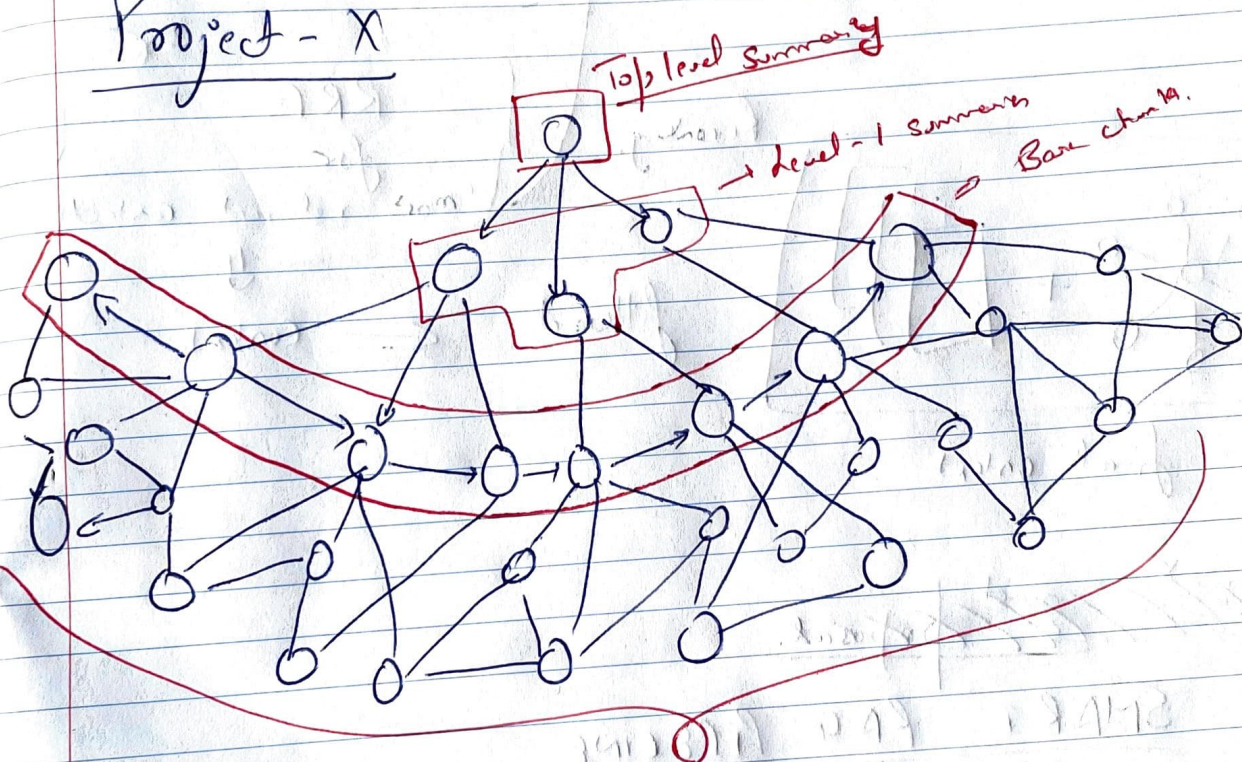 Project - X
Top level summary
→ Level-1 summaries
⇒ Base chunks.